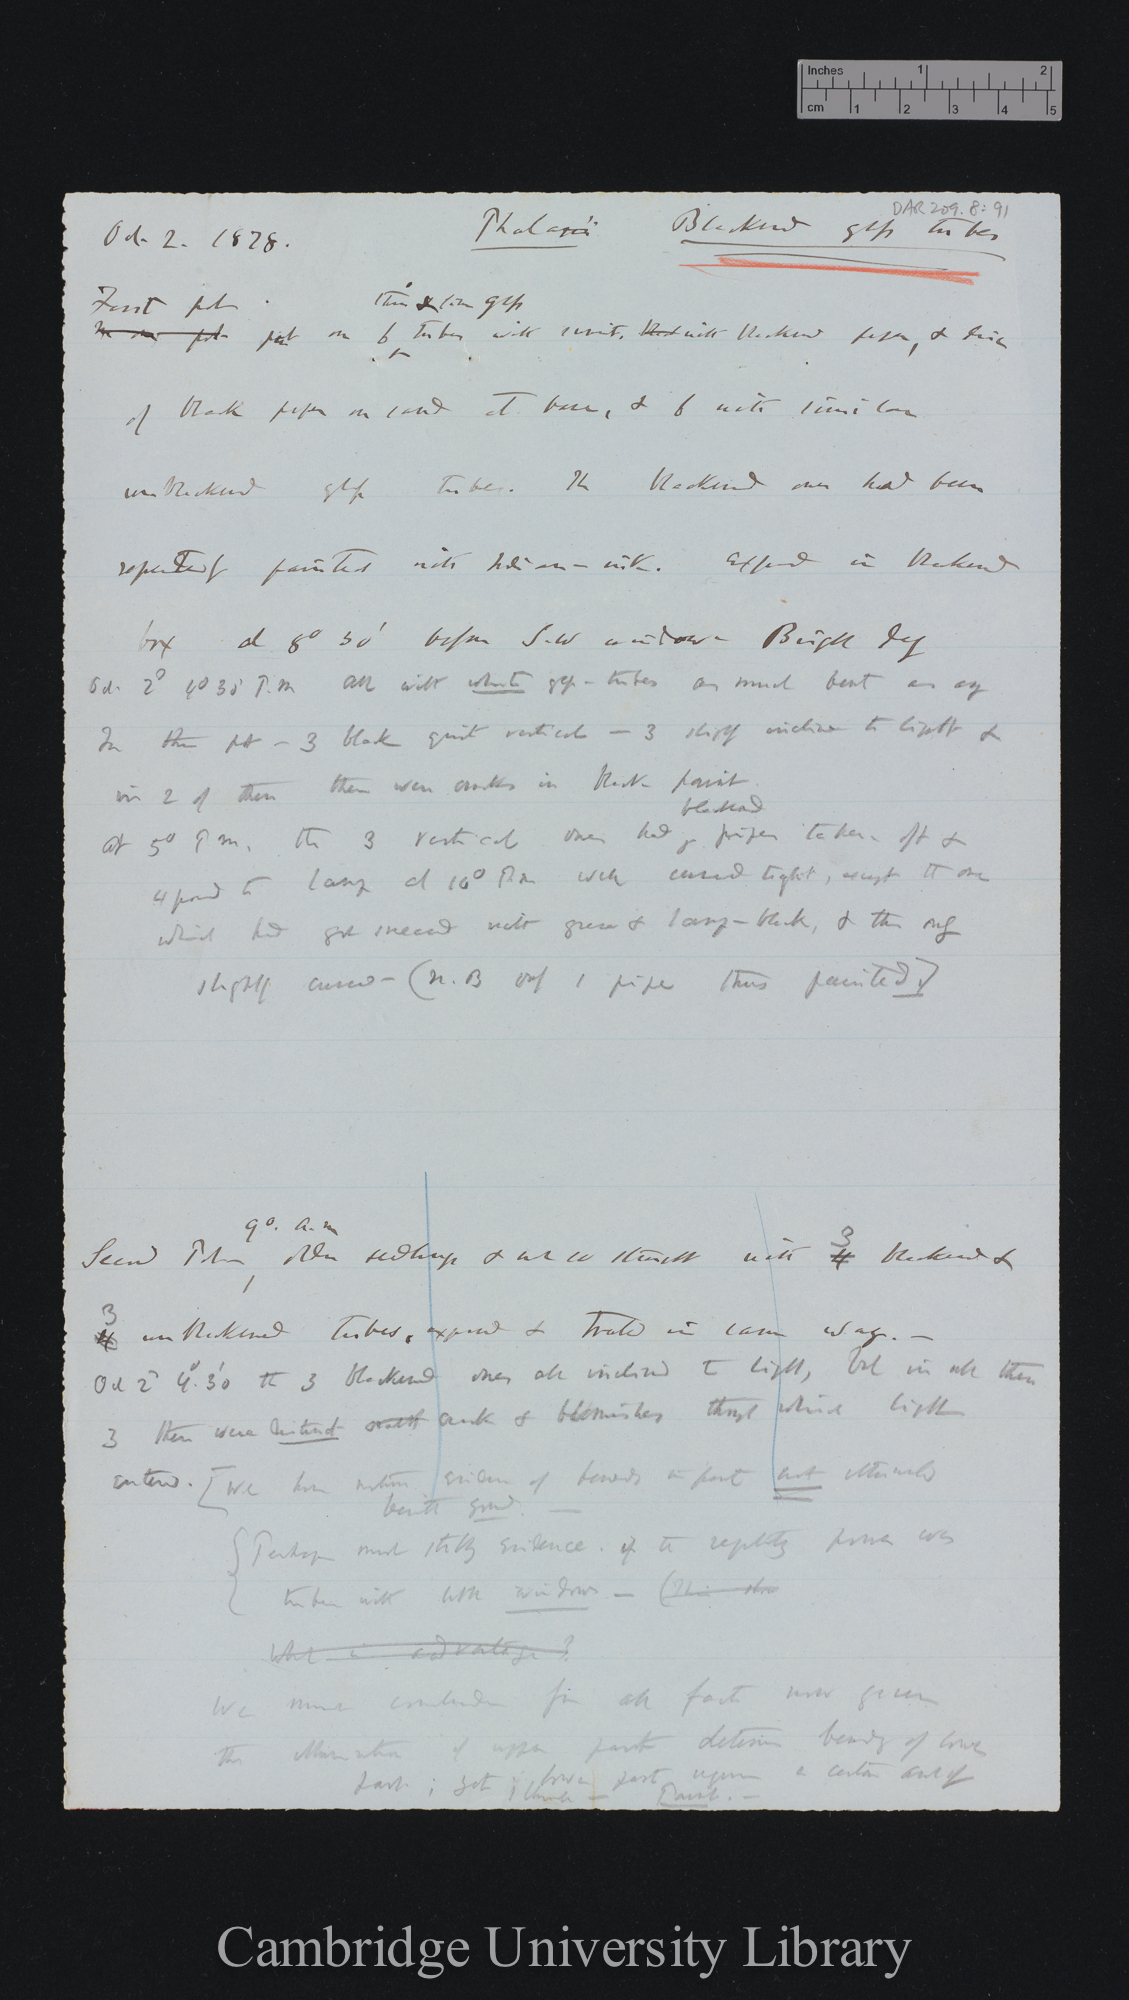 Inches 1 2
cm 1 2 3 4 5
DAR 209.8:91
Oct. 2. 1878. Phalaris Blackened glass tubes
First pot thin glass
put on 6 tubes with with blackened paper, &
of black paper on sand at base, & 6 with similar
unblackened glass tubes. The blackened ones had been
repeatedly painted with Indian-ink. Exposed in blackened
box at 8° 30' before S.W window Bright day
Oct. 2° 4° 30' P.m all with white glass-tubes as much bent as any
In the pot - 3 black quite vertical - 3 slightly inclined to light &
in 2 of them there were cracks in black paint
blackened
At 5° P.m. the 3 vertical ones had pipes taken off &
exposed to lamp at 10° P.m were curved to light, except the one
which had got smeared with grease & lamp-black, & this only
slightly curved - (N.B only 1 pipe thus painted)
9°. a.m
Second Pot, older seedlings & not so straight with 3 4 blackened &
3
4 unblackened tubes, exposed & treated in same way. —
Oct 2° 4°.30' the 3 blackened ones all inclined to light, but in all these
3 there were distinct small cracks & blemishes through which light
entered. [We have evidence of bending in part not illuminated
being good. —
{Perhaps most striking evidence of the power was
tubes with little windows — (This show
What is advantage?
We must conclude from all facts now given
the illumination of upper part determines bending of lower
part; yet lower part requires a certain amt of
— Paint. —
Cambridge University Library